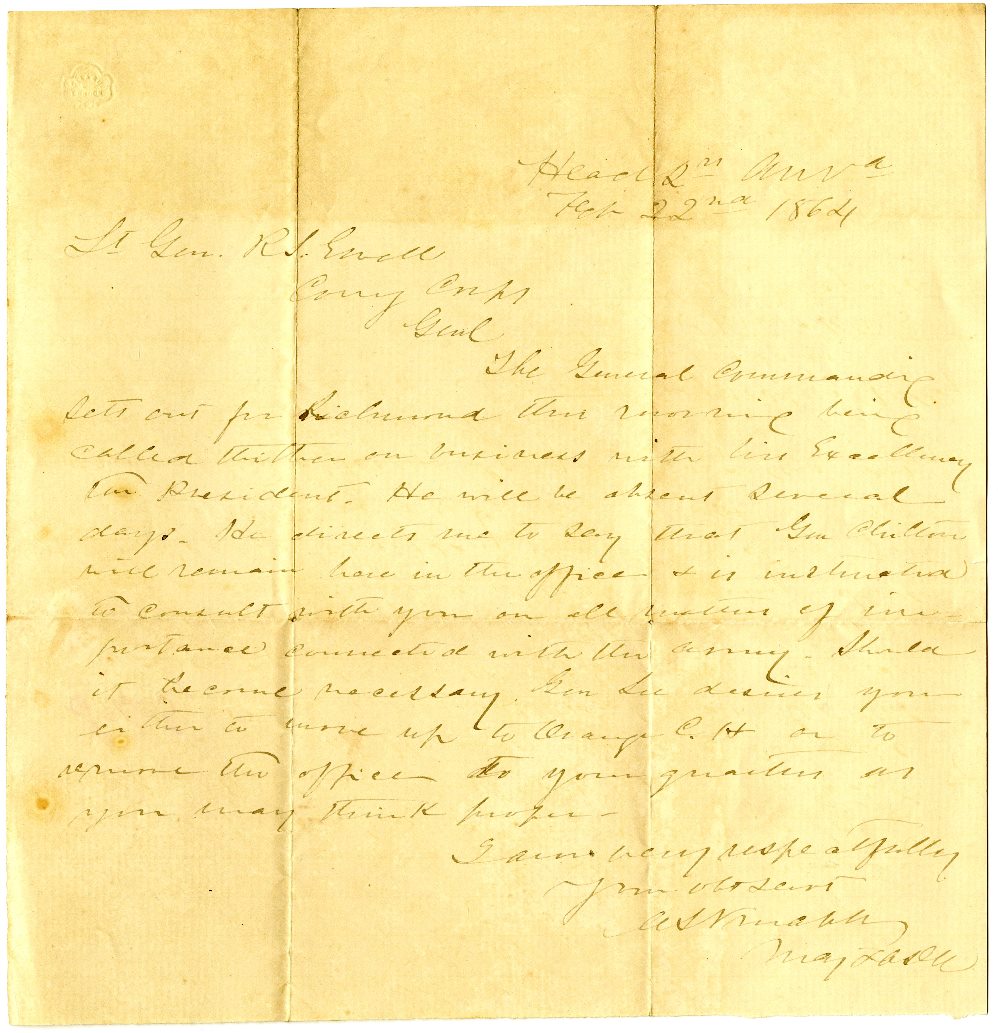 Head Qrs ANVa
Feb 22nd 1864
Lt Gen. R S. Ewell
Comg Corps
Genl
The General Commanding
sets out for Richmond this morning being
called thither on business with his Excellency
the President. He will be absent several
days. He directs me to say that Gen Chilton
will remain here in the office & is instructed
to consult with you on all matters of im-
portance connected with the army. Should
it become necessary Gen Lee desires you
either to move up to Orange C.H or to
remove the office to your quarters as
you may think proper-
I am very respectfully
Your obt servt
C S Venable
Maj & ADC